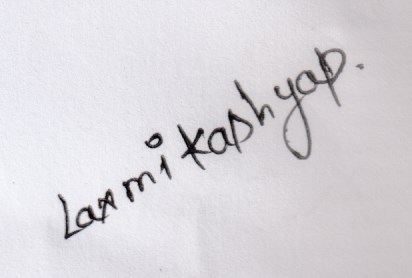 Laxmi Kashyap.